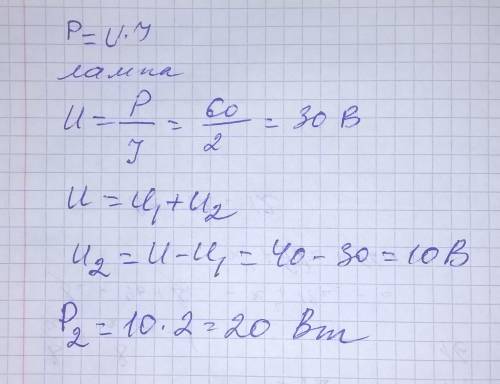 P = U · J
лампа
U = P/J = 60/2 = 30 В
U = U₁ + U₂
U₂ = U - U₁ = 40 - 30 = 10 В
P₂ = 10 · 2 = 20 Вт